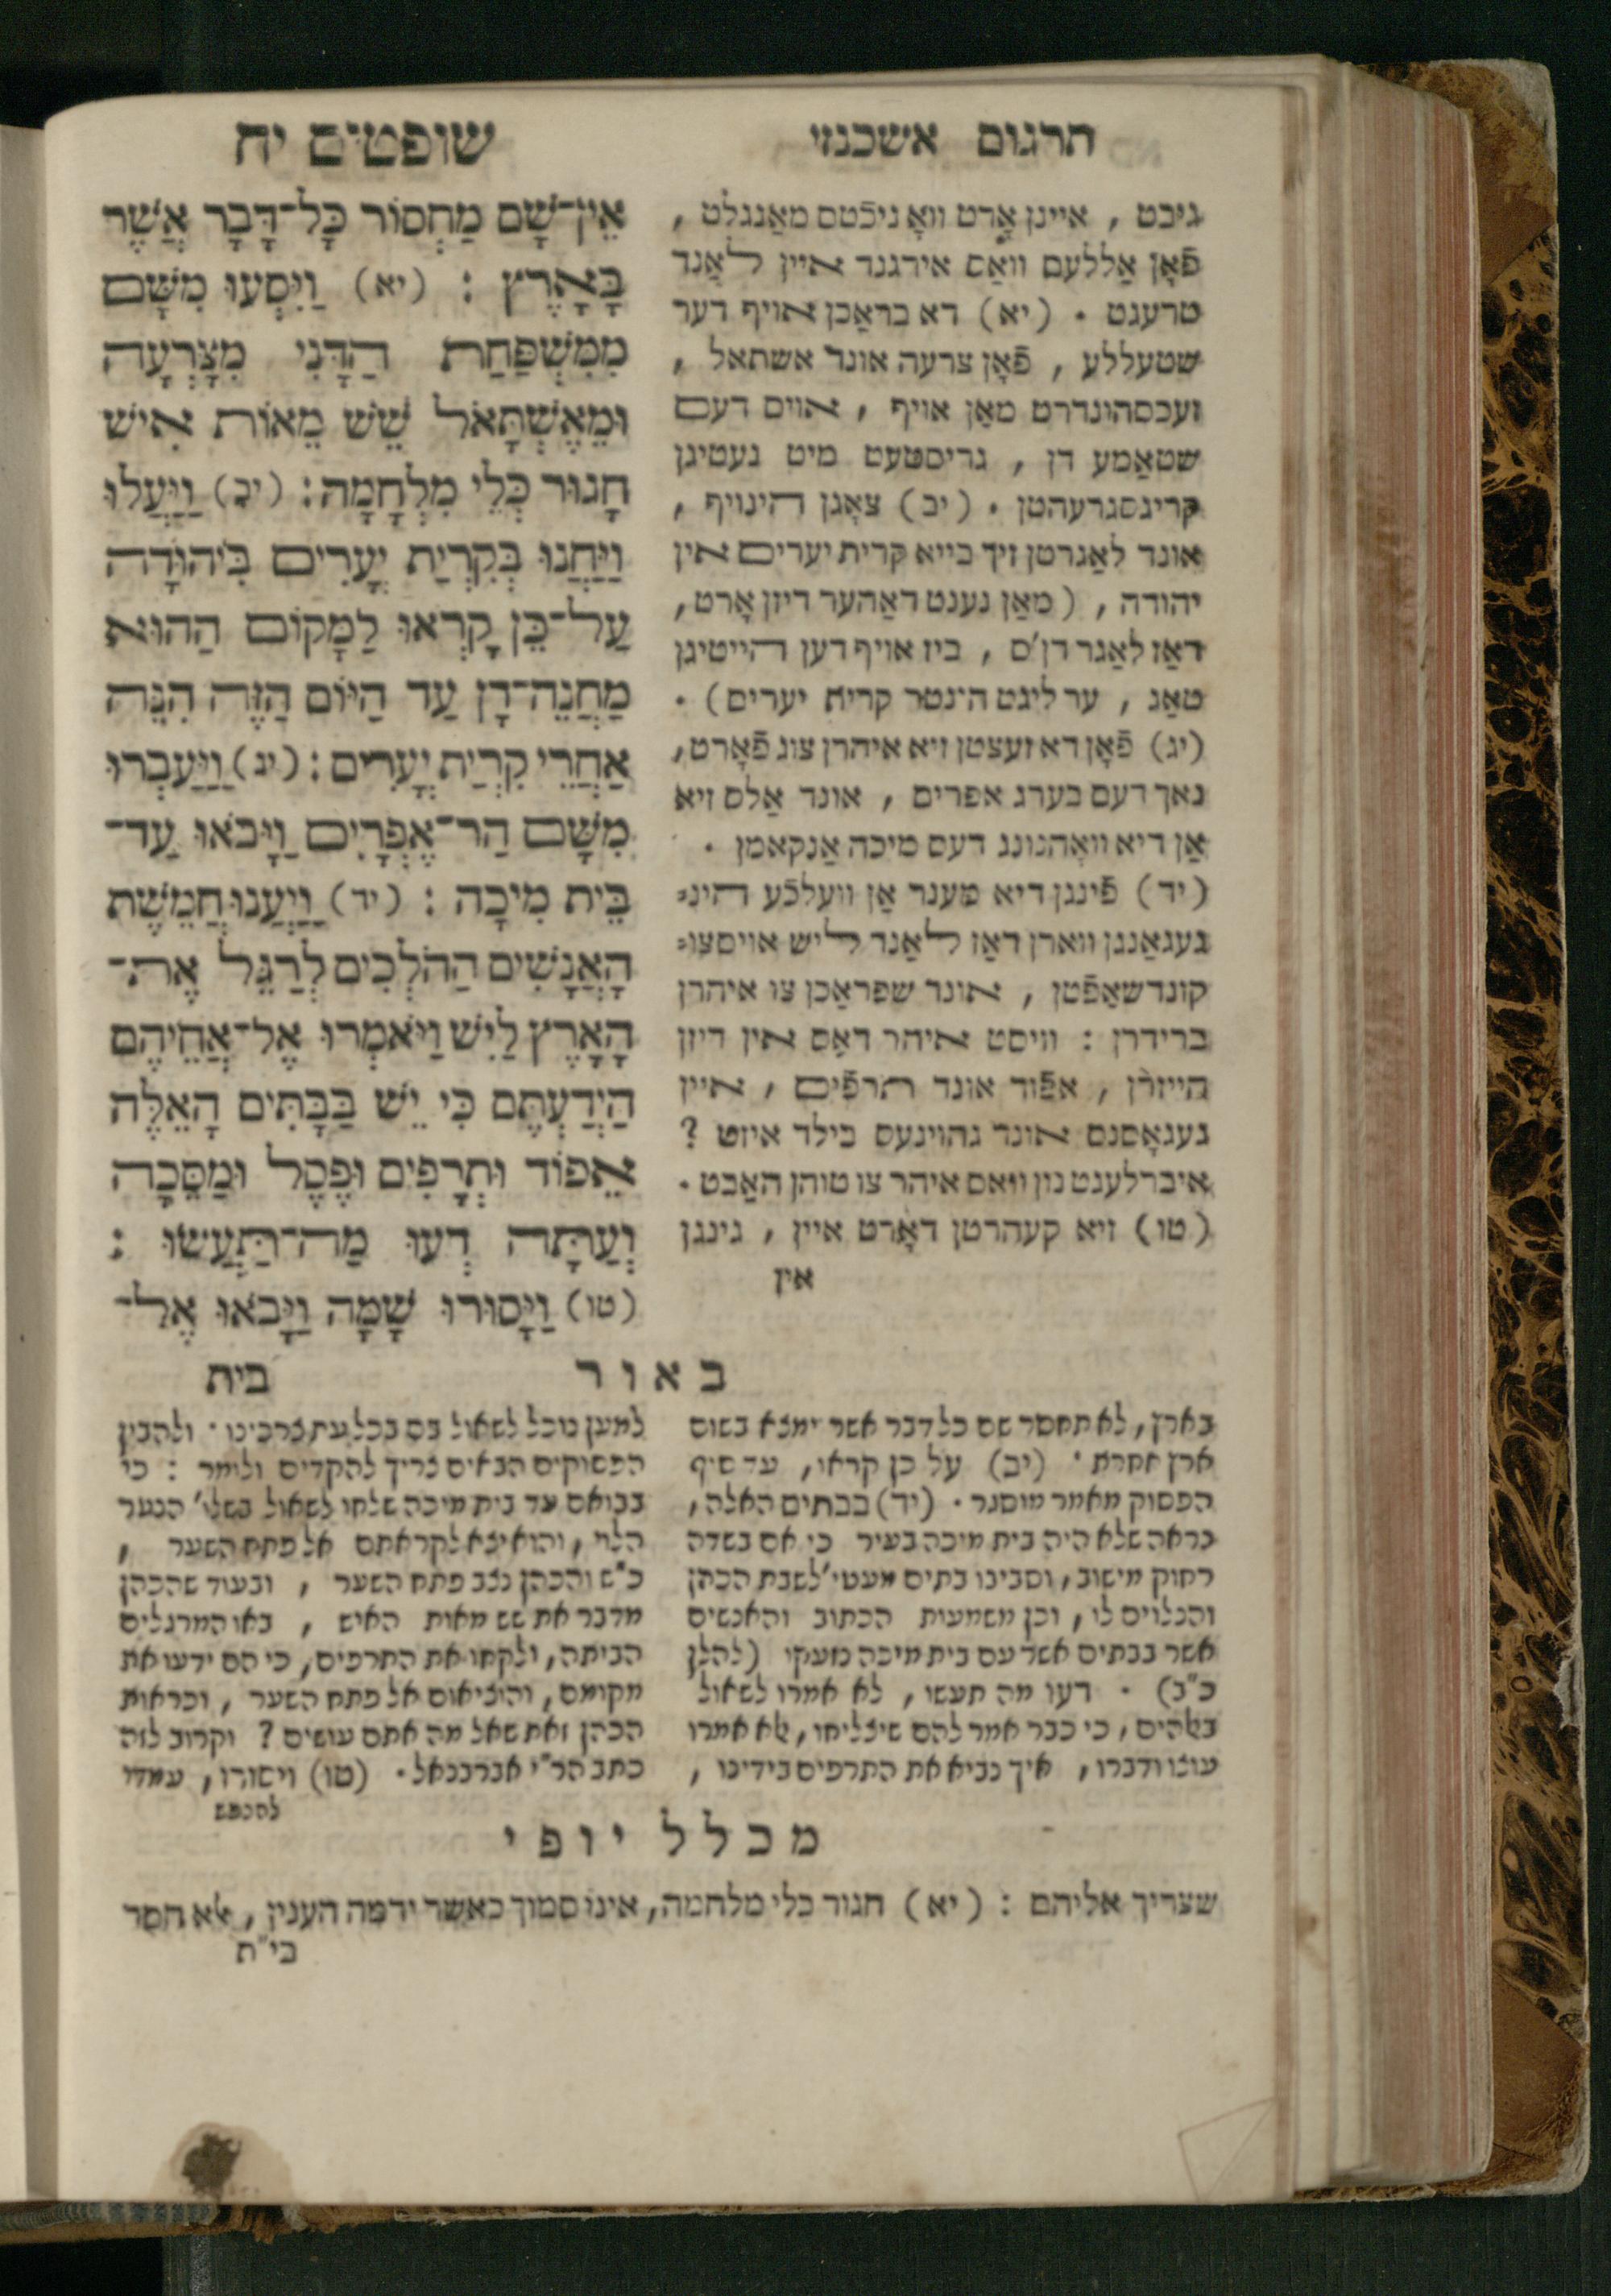 תרגום אשכנזי
שופטים יח
גיבט , איינן אָרט וואָ ניכֿטס מאַנגלט ,
פֿאָן אַללעם וואַס אירגנד איין לאַנד
טרעגט . (יא) דא בראַכן אויף דער
שטעללע , פֿאָן צרעה אונד אשתאל ,
זעכסהונדרט מאַן אויף , אויס דעם
שטאַמע דן , גריסטעט מיט נעטיגן
קריגסגרעהטן . (יב) צאָגן הינויף ,
אונד לאַגרטן זיך בייא קרית יערים אין
יהודה , (מאַן נענט דאַהער דיזן אָרט,
דאַז לאַגר דן'ס , ביז אויף דען הייטיגן
טאַג , ער ליגט הינטר קרית יערים) .
(יג) פֿאָן דא זעצטן זיא איהרן צוג פֿאָרט,
נאך דעם בערג אפרים , אונד אַלס זיא
אַן דיא וואָהנונג דעס מיכה אַנקאמן .
(יד) פֿינגן דיא מענר אַן וועלכֿע הינ=
געגאַנגן ווארן דאַז לאַנד ליש אויסצו=
קונדשאַפֿטן , אונד שפראַכן צו איהרן
ברידרן : וויסט איהר דאָס אין דיזן
הייזרן , אפֿוד אונד תרפֿים , איין
געגאָסנס אונד גהויגעס בילד איזט ?
איברלעגט נון וואס איהר צו טוהן האַבט .
(טו) זיא קעהרטן דאָרט איין , גינגן
אין
אֵין־שָׁם מַחְסוֹר כָּל־דָּבָר אֲשֶׁר
בָּאָרֶץ : (יא) וַיִּסְעוּ מִשָּׁם
מִמִּשְׁפַּחַת הַדָּנִי מִצָּרְעָה
וּמֵאֶשְׁתָּאֹל שֵׁשׁ מֵאוֹת אִישׁ
חָגוּר כְּלֵי מִלְחָמָה : (יב) וַיַּעֲלוּ
וַיַּחֲנוּ בְּקִרְיַת יְעָרִים בִּיהוּדָה
עַל־כֵּן קָרְאוּ לַמָּקוֹם הַהוּא
מַחֲנֵה־דָן עַד הַיּוֹם הַזֶּה הִנֵּה
אַחֲרֵי קִרְיַת יְעָרִים : (יג) וַיַּעַבְרוּ
מִשָּׁם הַר־אֶפְרָיִם וַיָּבֹאוּ עַד־
בֵּית מִיכָה : (יד) וַיַּעֲנוּ חֲמֵשֶׁת
הָאֲנָשִׁים הַהֹלְכִים לְרַגֵּל אֶת־
הָאָרֶץ לַיִשׁ וַיֹּאמְרוּ אֶל־אֲחֵיהֶם
הַיְדַעְתֶּם כִּי יֵשׁ בַּבָּתִּים הָאֵלֶּה
אֵפוֹד וּתְרָפִים וּפֶסֶל וּמַסֵּכָה
וְעַתָּה דְּעוּ מַה־תַּעֲשׂוּ :
(טו) וַיָּסוּרוּ שָׁמָּה וַיָּבֹאוּ אֶל־
בית
באור
בארץ, לא תחסר שם כל דבר אשר ימצא בשום
ארץ אחרת . (יב) על כן קראו, עד סוף
הפסוק מאמר מוסגר . (יד) בבתים האלה,
נראה שלא היה בית מיכה בעיר כי אם בשדה
רחוק מישוב, וסבינו בתים מעטי' לשבת הכהן
והנלוים לו, וכן משמעות הכתוב והאנשים
אשר בבתים אשר עם בית מיכה נזעקו (להלן
כ"ב) . דעו מה תעשו, לא אמרו לשאול
באלהים, כי כבר אמר להם שיצליחו, אלא אמרו
עוצו ודברו, איך נביא את התרפים בידינו,
למען נוכל לשאול בם בכל עת צרכינו . ולהבין
הפסוקים הבאים צריך להקדים ולומר : כי
בבואם עד בית מיכה שלחו לשאול בשלו' הנער
הלוי, והוא יצא לקראתם אל פתח השער ,
כ"ש והכהן נצב פתח השער , ובעוד שהכהן
מדבר את שש מאות האיש , באו המרגלים
הביתה, ולקחו את התרפים, כי הם ידעו את
מקומם, והוציאום אל פתח השער , ובראות
הכהן זאת שאל מה אתם עושים ? וקרוב לזה
כתב הר"י אברבנאל . (טו) ויסורו, עמדו
מכלל יופי
שצריך אליהם : (יא) חגור כלי מלחמה, אינו סמוך כאשר ידמה הענין , אלא חסר
בי"ת